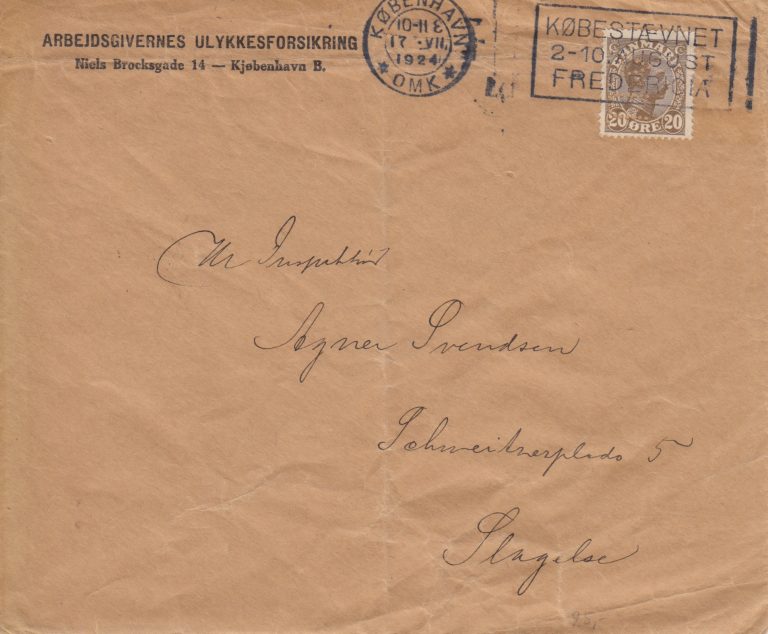 ARBEJDSGIVERNES ULYKKESFORSIKRING
Niels Brocksgade 14 — Kjøbenhavn B.
KØBENHAVN
10-11 E
17 VII.
1924
OMK
KØBESTÆVNET
2-10 AUGUST
FREDERICIA
DANMARK
20 ØRE 20
Hr Inspektør
Agner Svendsen
Schweitzerplads 5
Slagelse